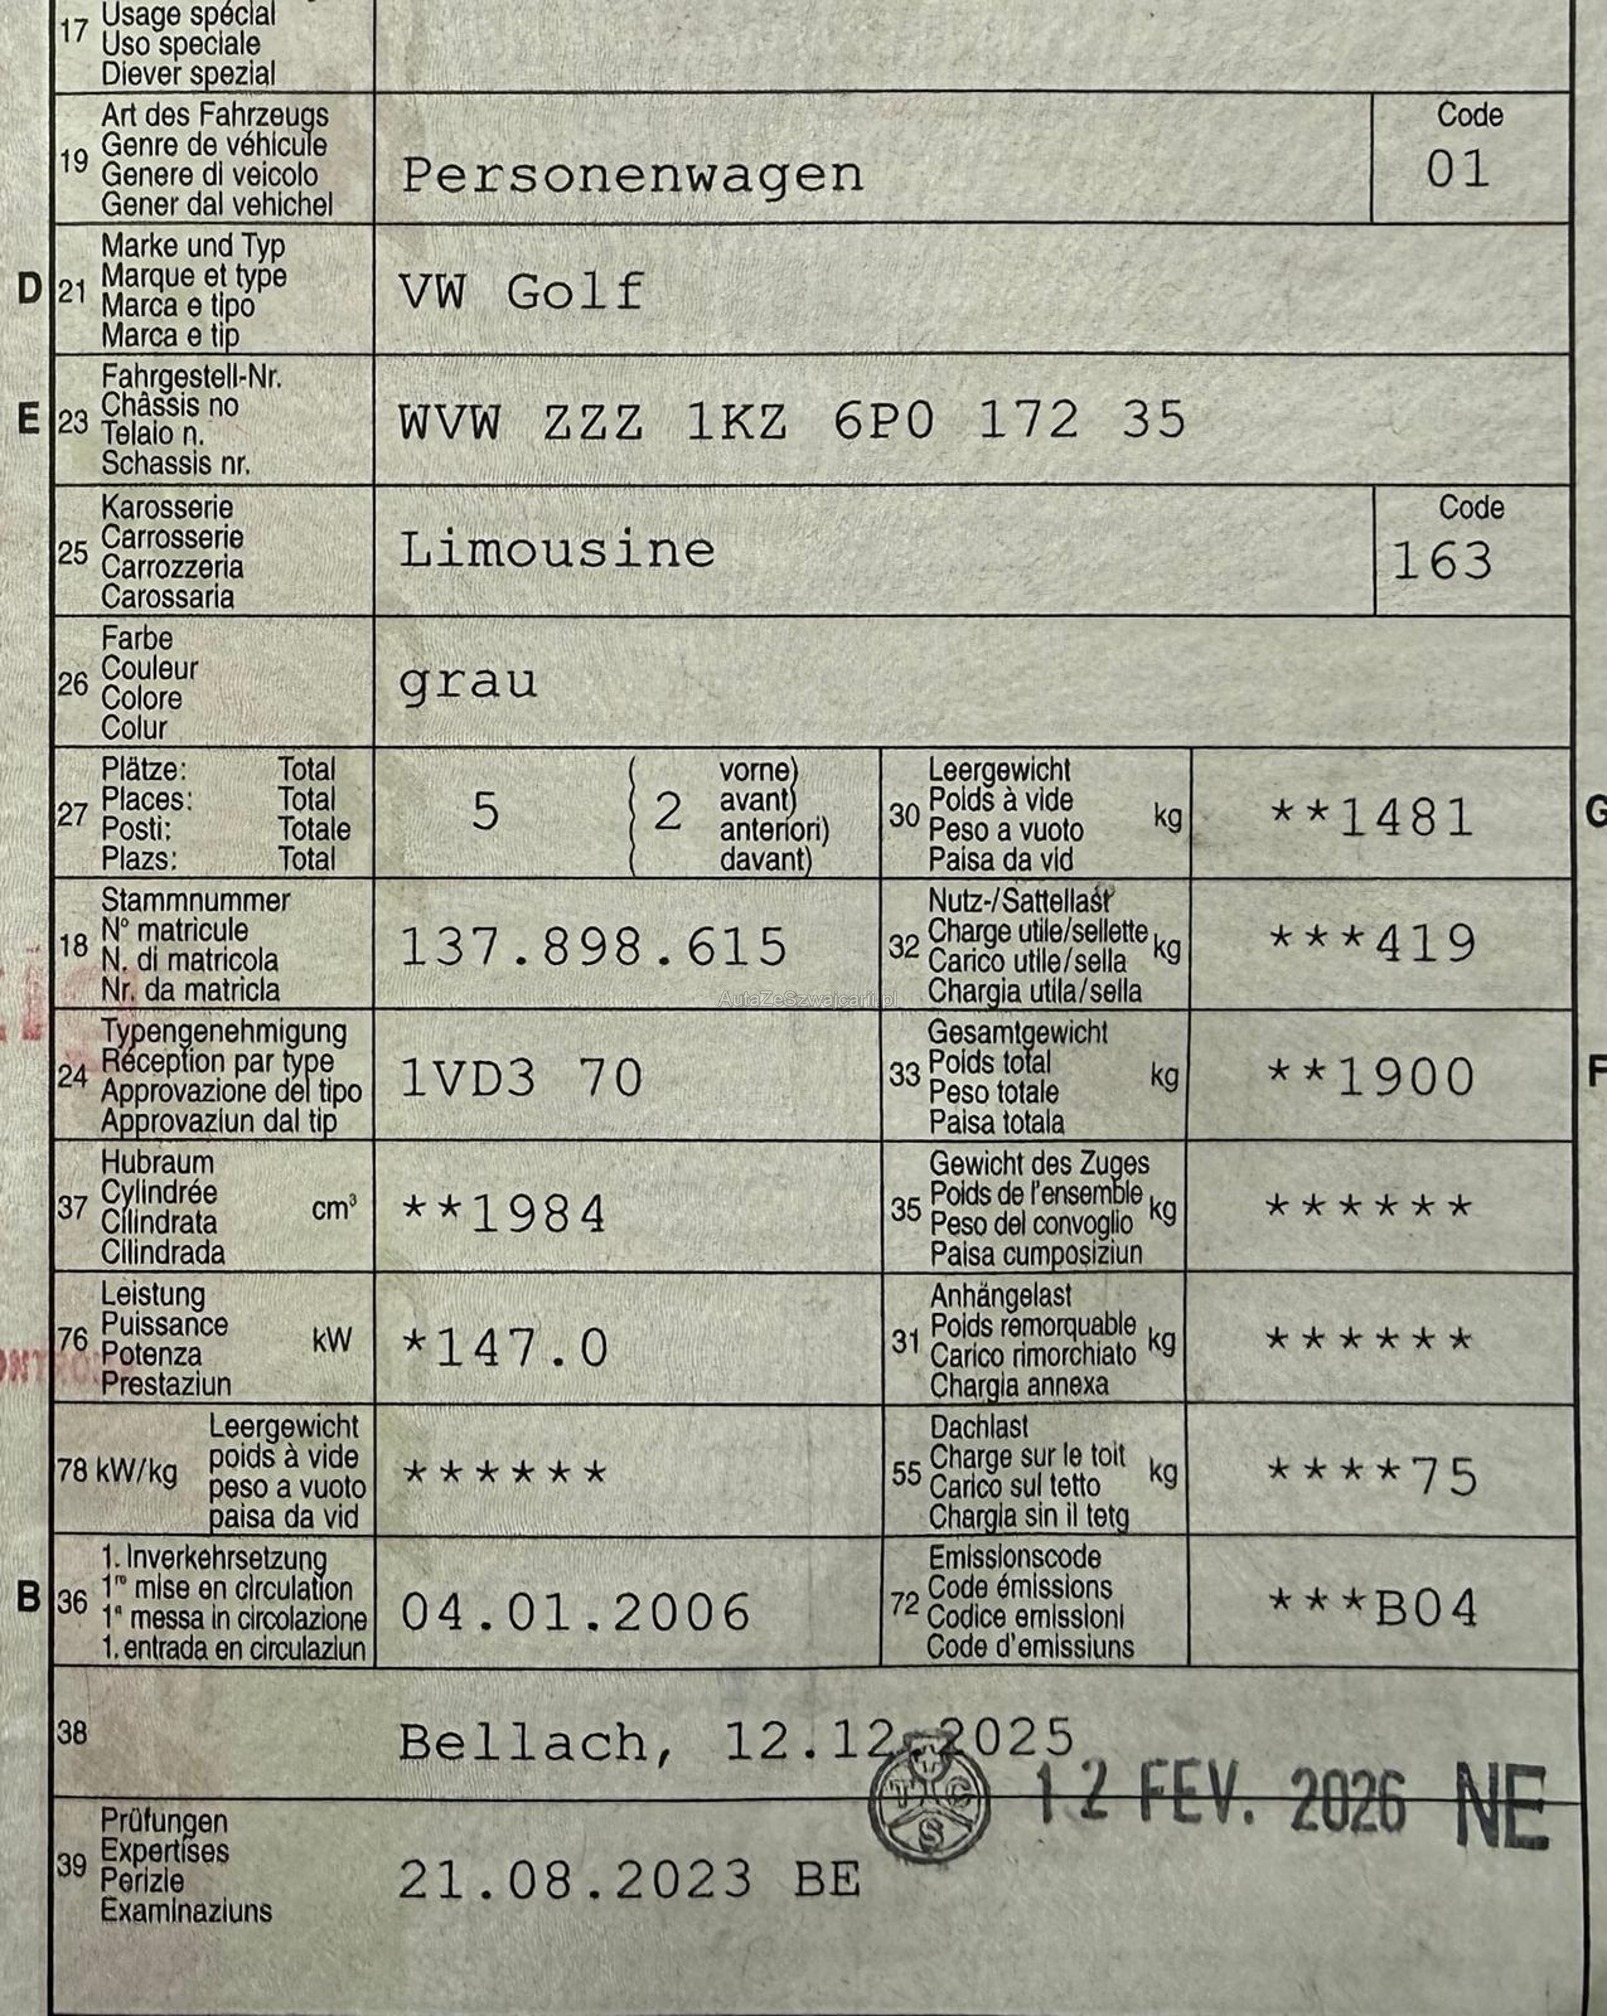 17 Usage spécial
Uso speciale
Diever spezial
19 Art des Fahrzeugs
Genre de véhicule
Genere di veicolo
Gener dal vehichel
Personenwagen
Code
01
D 21 Marke und Typ
Marque et type
Marca e tipo
Marca e tip
VW Golf
E 23 Fahrgestell-Nr.
Châssis no
Telaio n.
Schassis nr.
WVW ZZZ 1KZ 6P0 172 35
25 Karosserie
Carrosserie
Carrozzeria
Carossaria
Limousine
Code
163
26 Farbe
Couleur
Colore
Colur
grau
27 Plätze: Total
Places: Total
Posti: Totale
Plazs: Total
5
2
vorne)
avant)
anteriori)
davant)
30 Leergewicht
Poids à vide
Peso a vuoto
Paisa da vid
kg
**1481
G
18 Stammnummer
N° matricule
N. di matricola
Nr. da matricla
137.898.615
32 Nutz-/Sattellast
Charge utile/sellette
Carico utile/sella
Chargia utila/sella
kg
***419
AutaZeSzwajcarii.pl
24 Typengenehmigung
Réception par type
Approvazione del tipo
Approvaziun dal tip
1VD3 70
33 Gesamtgewicht
Poids total
Peso totale
Paisa totala
kg
**1900
F
37 Hubraum
Cylindrée
Cilindrata
Cilindrada
cm³
**1984
35 Gewicht des Zuges
Poids de l'ensemble
Peso del convoglio
Paisa cumposiziun
kg
******
76 Leistung
Puissance
Potenza
Prestaziun
kW
*147.0
31 Anhängelast
Poids remorquable
Carico rimorchiato
Chargia annexa
kg
******
78 kW/kg
Leergewicht
poids à vide
peso a vuoto
paisa da vid
******
55 Dachlast
Charge sur le toit
Carico sul tetto
Chargia sin il tetg
kg
****75
B 36 1. Inverkehrsetzung
1re mise en circulation
1a messa in circolazione
1. entrada en circulaziun
04.01.2006
72 Emissionscode
Code émissions
Codice emissioni
Code d'emissiuns
***B04
38 Bellach, 12.12.2025
TCS
12 FEV. 2026 NE
39 Prüfungen
Expertises
Perizie
Examinaziuns
21.08.2023 BE